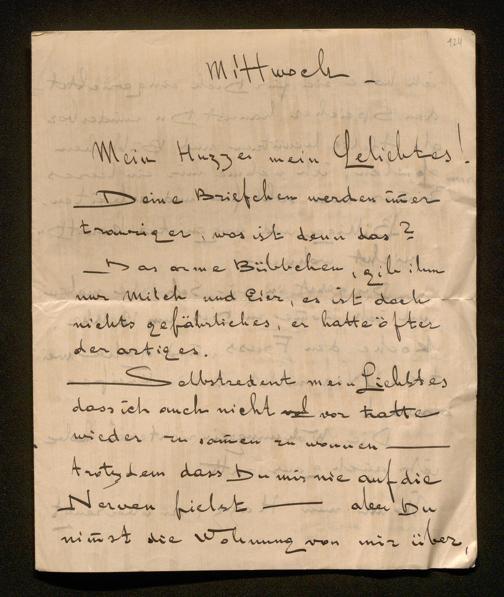 124
Mittwoch –
Mein Huzzes mein Geliebtes!
– Deine Briefchen werden im̄er
trauriger, was ist denn das?
– Das arme Bübbchen, gib ihm
nur Milch und Eier, es ist doch
nichts gefährliches, er hatte öfter
derartiges.
– Selbstredent mein Liebstes
dass ich auch nicht vor hatte
wieder zu sam̄en zu wonnen –
trotzdem dass Du mir nie auf die
Nerven fielst – aber Du
nim̄st die Wohnung von mir über,